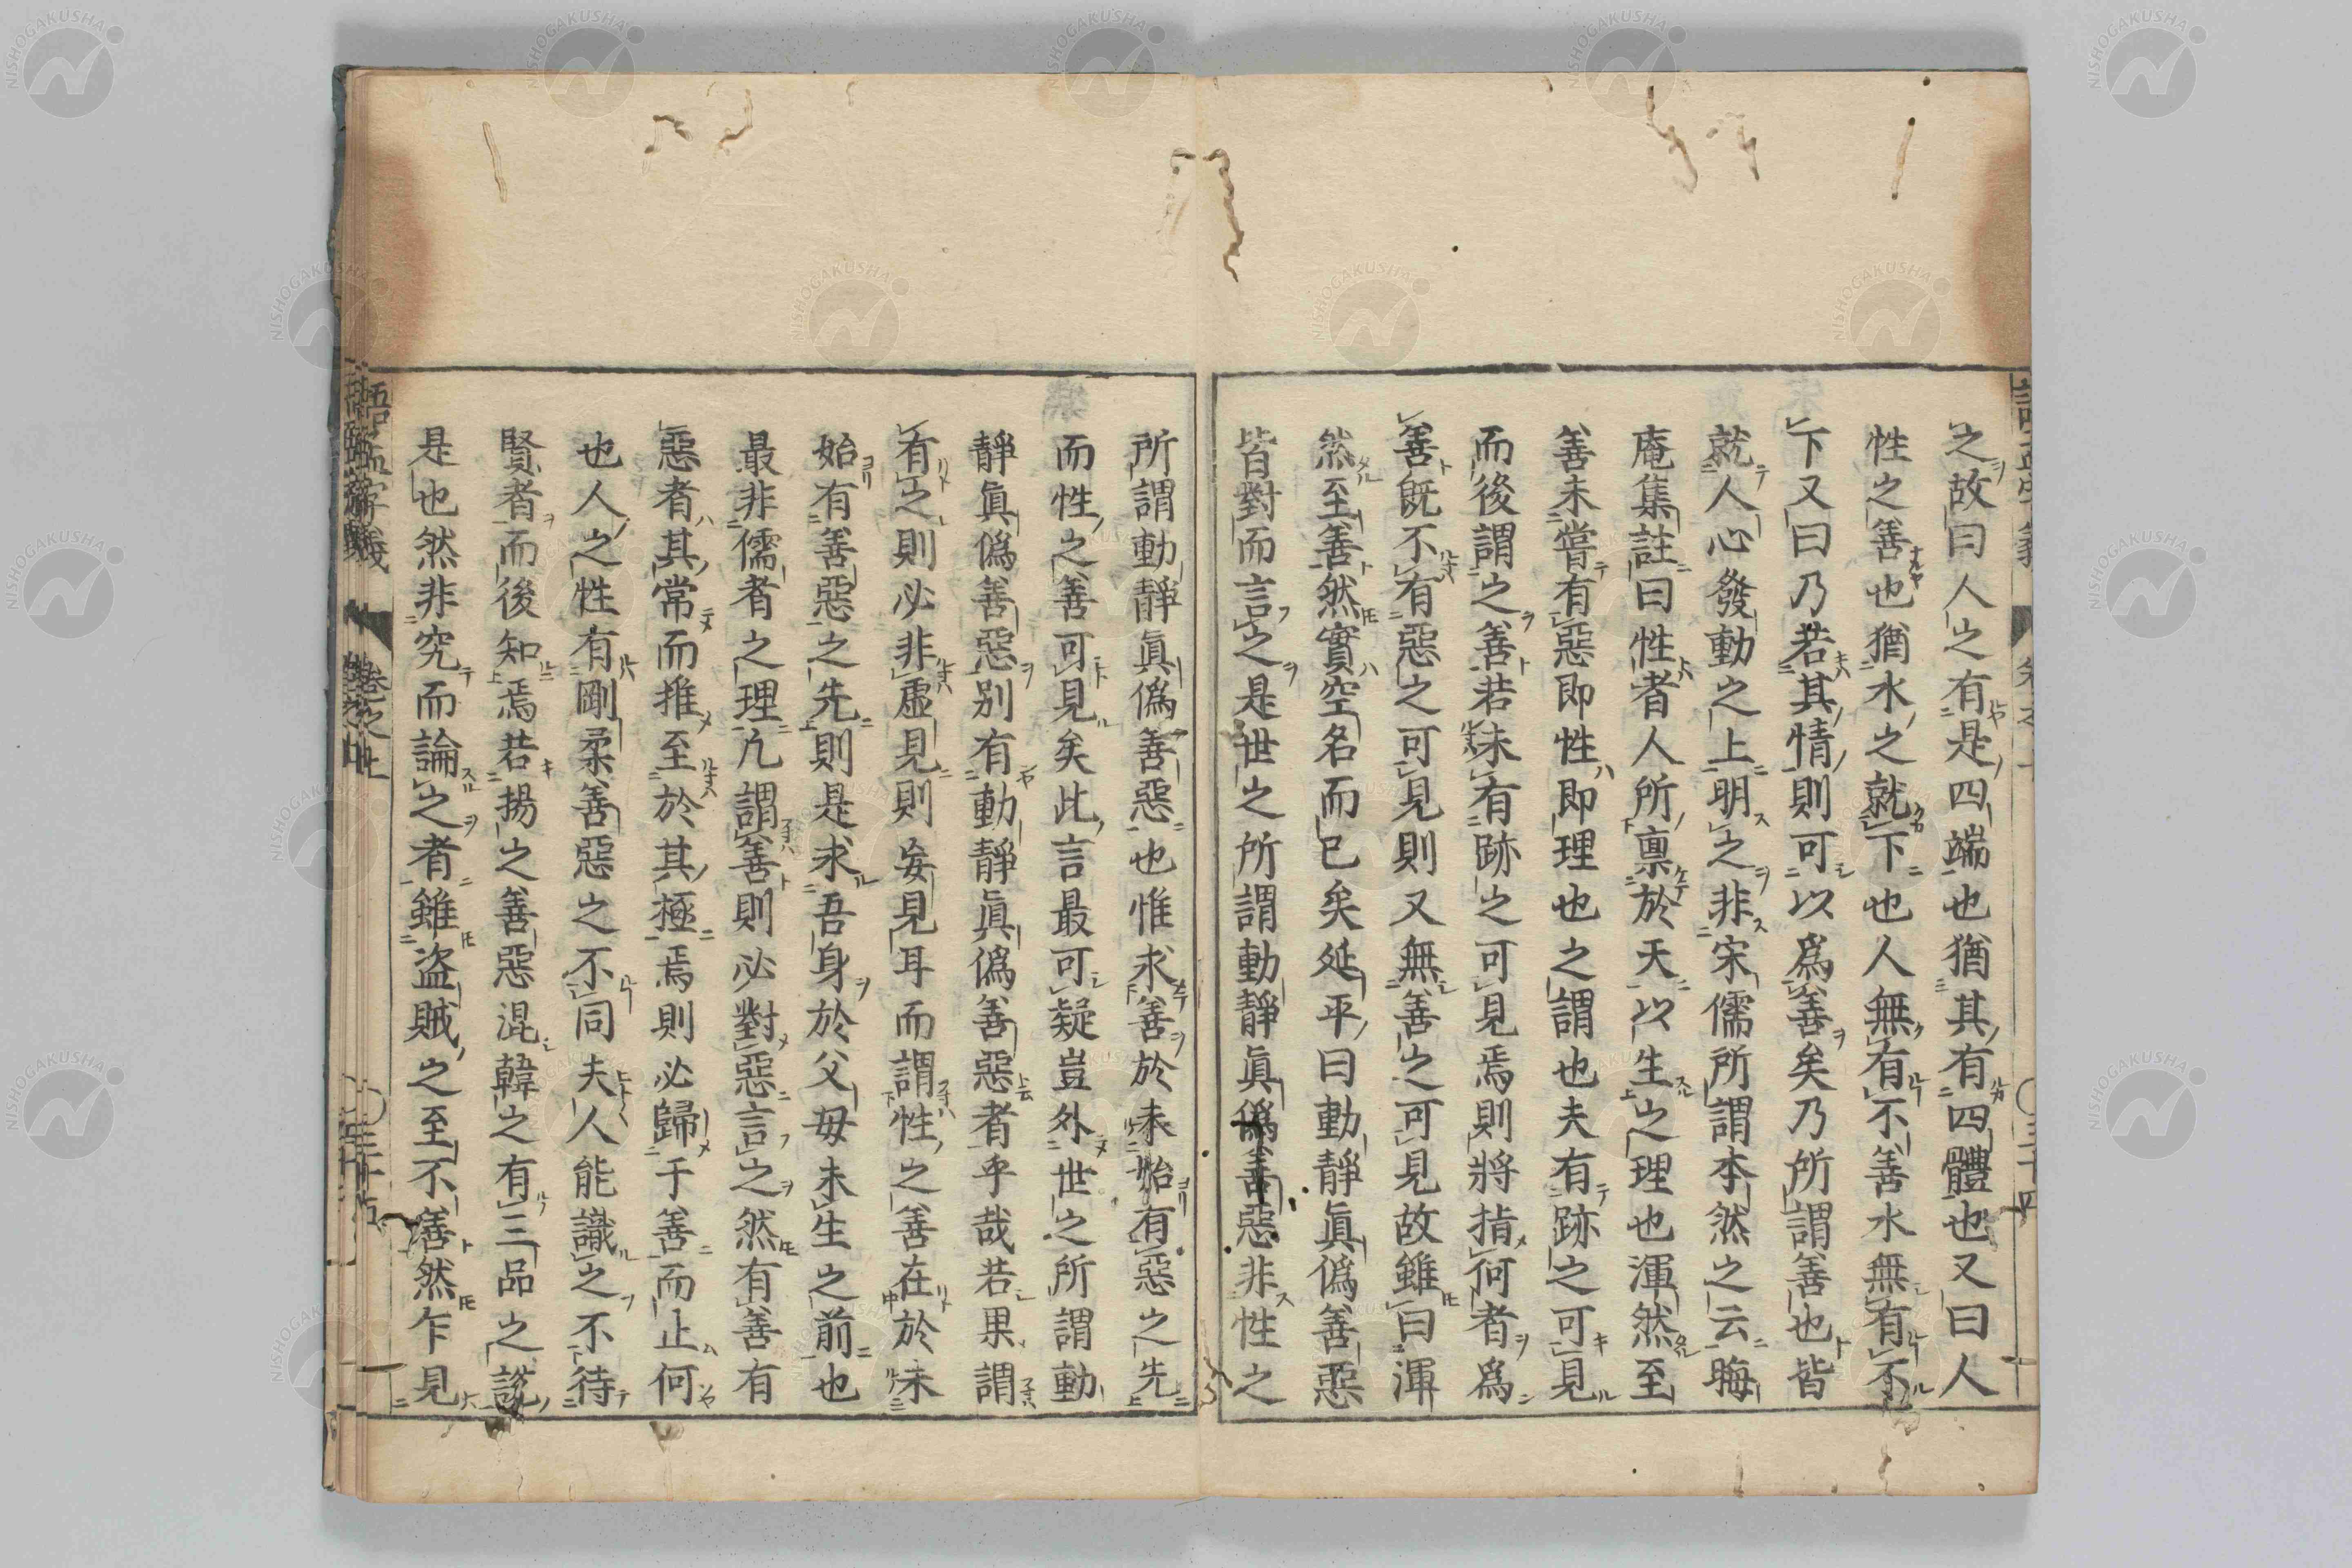 之故曰人之有是四端也猶其有四體也又曰人
性之善也猶水之就下也人無有不善水無有不
下又曰乃若其情則可以爲善矣乃所謂善也皆
就人心發動之上明之非宋儒所謂本然之云晦
庵集註曰性者人所稟於天以生之理也渾然至
善未嘗有惡即性即理也之謂也夫有跡之可見
而後謂之善若未有跡之可見焉則將指何者爲
善既不有惡之可見則又無善之可見故雖曰渾
然至善然實空名而已矣延平曰動靜眞僞善惡
皆對而言之是世之所謂動靜眞僞善惡非性之
所謂動靜眞僞善惡也惟求善於未始有惡之先
而性之善可見矣此言最可疑豈外世之所謂動
靜眞僞善惡別有動靜眞僞善惡者乎哉若果謂
有之則必非虛見則妄見耳而謂性之善在於未
始有善惡之先則是求吾身於父母未生之前也
最非儒者之理凡謂善則必對惡言之然有善有
惡者其常而推至於其極焉則必歸于善而止何
也人之性有剛柔善惡之不同夫人能識之不待
賢者而後知焉若揚之善惡混韓之有三品之說
是也然非究而論之者雖盜賊之至不善然乍見
語孟字義 卷之上 三十五
NISHOGAKUSHA